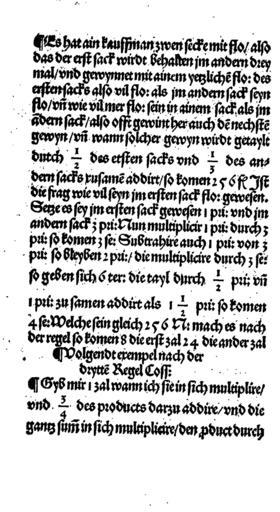 ¶ Es hat ain kauffman zwen secke mit flo/ also
das der erst sack wirdt behalten jm andern drey
mal/ vnd gewynnet mit ainem yetzlichē flo: des
ersten sacks also vil flo: als jm andern sack seyn
flo/ vñ wie vil mer flo: sein in ainem sack als jm
andern sack/ also offt gewint her auch dē nechstē
gewyn/ vñ wann solcher gewyn wirdt getaylt
durch 1/2 des ersten sacks vnd 1/3 des an-
dern sacks zusamē addirt/ so komen 256 fl Ist
die frag wie vil seyn jm ersten sack flo: gewesen.
Setze es sey jm ersten sack gewesen 1 pri: vnd jm
andern sack 3 pri: Nun multiplicir 1 pri: durch 3
pri: so komen 3 se: Subtrahire auch 1 pri: von 3
pri: so bleyben 2 pri:/ die multiplicire durch 3 se:
so geben sich 6 ter: die tayl durch 1/2 pri: vñ
1 pri: zu samen addirt als 1 1/2 pri: so komen
4 se: Welche sein gleich 256 N: mach es nach
der regel so komen 8 die erst zal 24 die ander zal
¶ Volgendt exempel nach der
drytte Regel Coss:
¶ Gyb mir 1 zal wann ich sie in sich multiplire/
vnd 3/4 des products darzu addire/ vnd die
gantz sum̄ in sich multiplicire/ den pduct durch